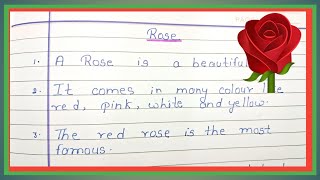 Rose
1. A Rose is a beautiful
2. It comes in many colour like
red, pink, white and yellow.
3. The red rose is the most
famous.